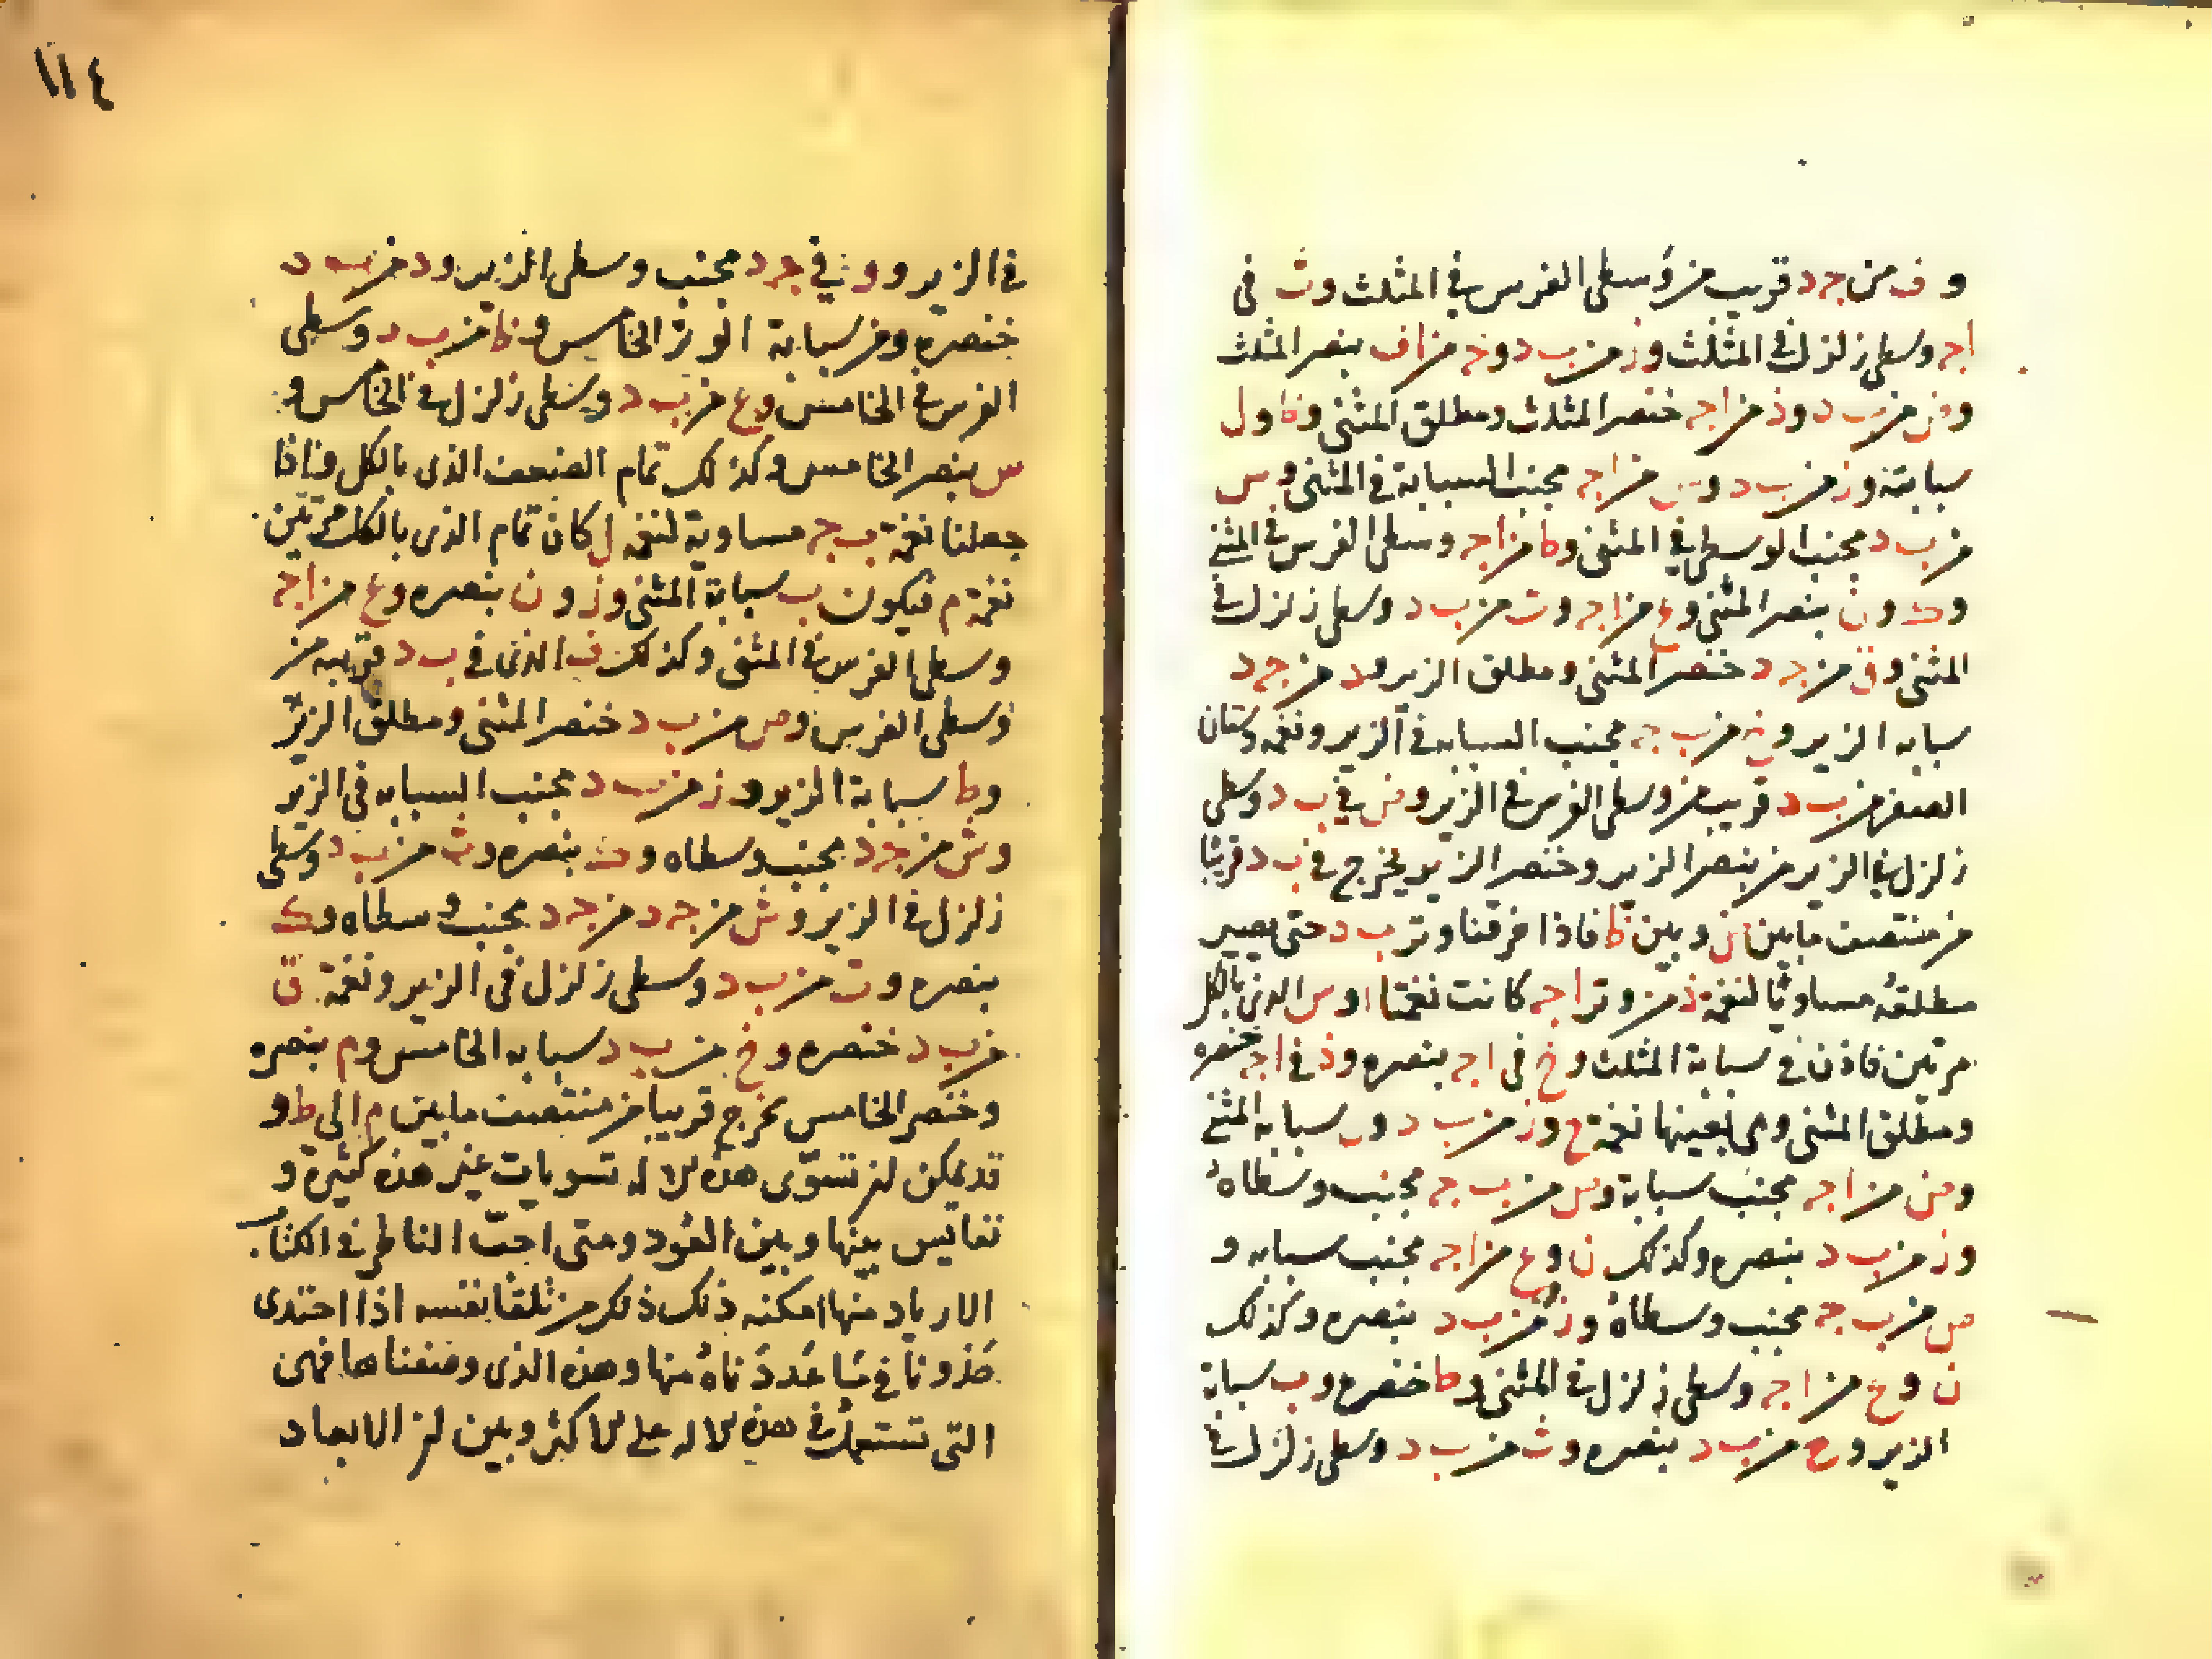 و ف من ج د قريب من وسطى الفرس في المثلث وث في
ا ج وسطى زلزل في المثلث و ز من ب د و خ من ا ف بنصر المثلث
من ب د و ذ من ا ج خنصر المثلث ومطلق المثنى و ظ و ل
سبابته و ز من ب د من ا ج مجنب السبابة في المثنى و س
من ب د مجنب الوسطى في المثنى و ط من ا ج وسطى الفرس في المثنى
و ك و ن بنصر المثنى و ع من ا ج و ت من ب د وسطى زلزل في
المثنى و ق من ج د خنصر المثنى ومطلق الزير و د من ج د
سبابه الزير من ب ج مجنب السبابه في الزير ونغمه دستان
من ب د قريب من وسطى الفرس في الزير و ض في ب د وسطى
زلزل في الزير من بنصر الزير وخنصر الزير يخرج في ب د قريبا
من منتصف ما بين ض و بين ظ فاذا خرقنا وتر ب د حتى يصير
مطلقه مساويا لنغمة ذ من وتر ا ج كانت نغمتا ا و س الذي بالكل
مرتين فاذن في سبابة المثلث و خ في ا ج بنصره و ذ في ا ج خنصره
ومطلق المثنى وهى بعينها نغمة ح و ز من ب د و ل سبابه المثنى
و ض من ا ج مجنب سبابة و س من ب ج مجنب وسطاه
و ز من ب د بنصره وكذلك ن و ع من ا ج مجنب سبابه و
ص من ب ج مجنب وسطاه و ز من ب د بنصره وكذلك
ن و ع من ا ج وسطى زلزل في المثنى و ط خنصره و ب سبابة
الزير و ح من ب د بنصره و ث من ب د وسطى زلزل في
١١٤
في الزير و و ث في ج د مجنب وسطى الزير و د من ب د
خنصره ومن سبابة الوتر الخامس و ظ من ب د وسطى
الفرس في الخامس و ع من ب د وسطى زلزل في الخامس و
س بنصر الخامس وكذلك تمام الضعف الذى بالكل واذا
جعلنا نغمة ب ج مساوية لنغمه ل كان تمام الذى بالكل مرتين
نغمة م فيكون ب سبابة المثنى و ز و ن بنصره و ع من ا ج
وسطى الفرس في المثنى وكذلك ف الذى في ب د قريبه من
وسطى الفرس و ص من ب د خنصر المثنى ومطلق الزير
و ط سبابة الزير و ز من ب د مجنب السبابه في الزير
و ش من ج د مجنب وسطاه و ث بنصره و ث من ب د وسطى
زلزل في الزير و ش من ج د من ج د مجنب وسطاه و ك
بنصره و ت من ب د وسطى زلزل في الزير ونغمة ق
من ب د خنصره و خ من ب د سبابه الخامس و م بنصره
وخنصر الخامس يخرج قريبا من منتصف ما بين م الى ط و
قد يمكن ان تسوّى هذه الاله تسويات غير هذه كثيرة و
تقايس بينها وبين العود ومتى احبّ الناظر في الكتاب
الازدياد منها امكنه ذلك من تلقا نفسه اذا احتذى
حذونا في ما عددناه منها وهذه الذى وضعناها فهى
التى تستعمل في هذه الاله على الاكثر وبين ان الابعاد